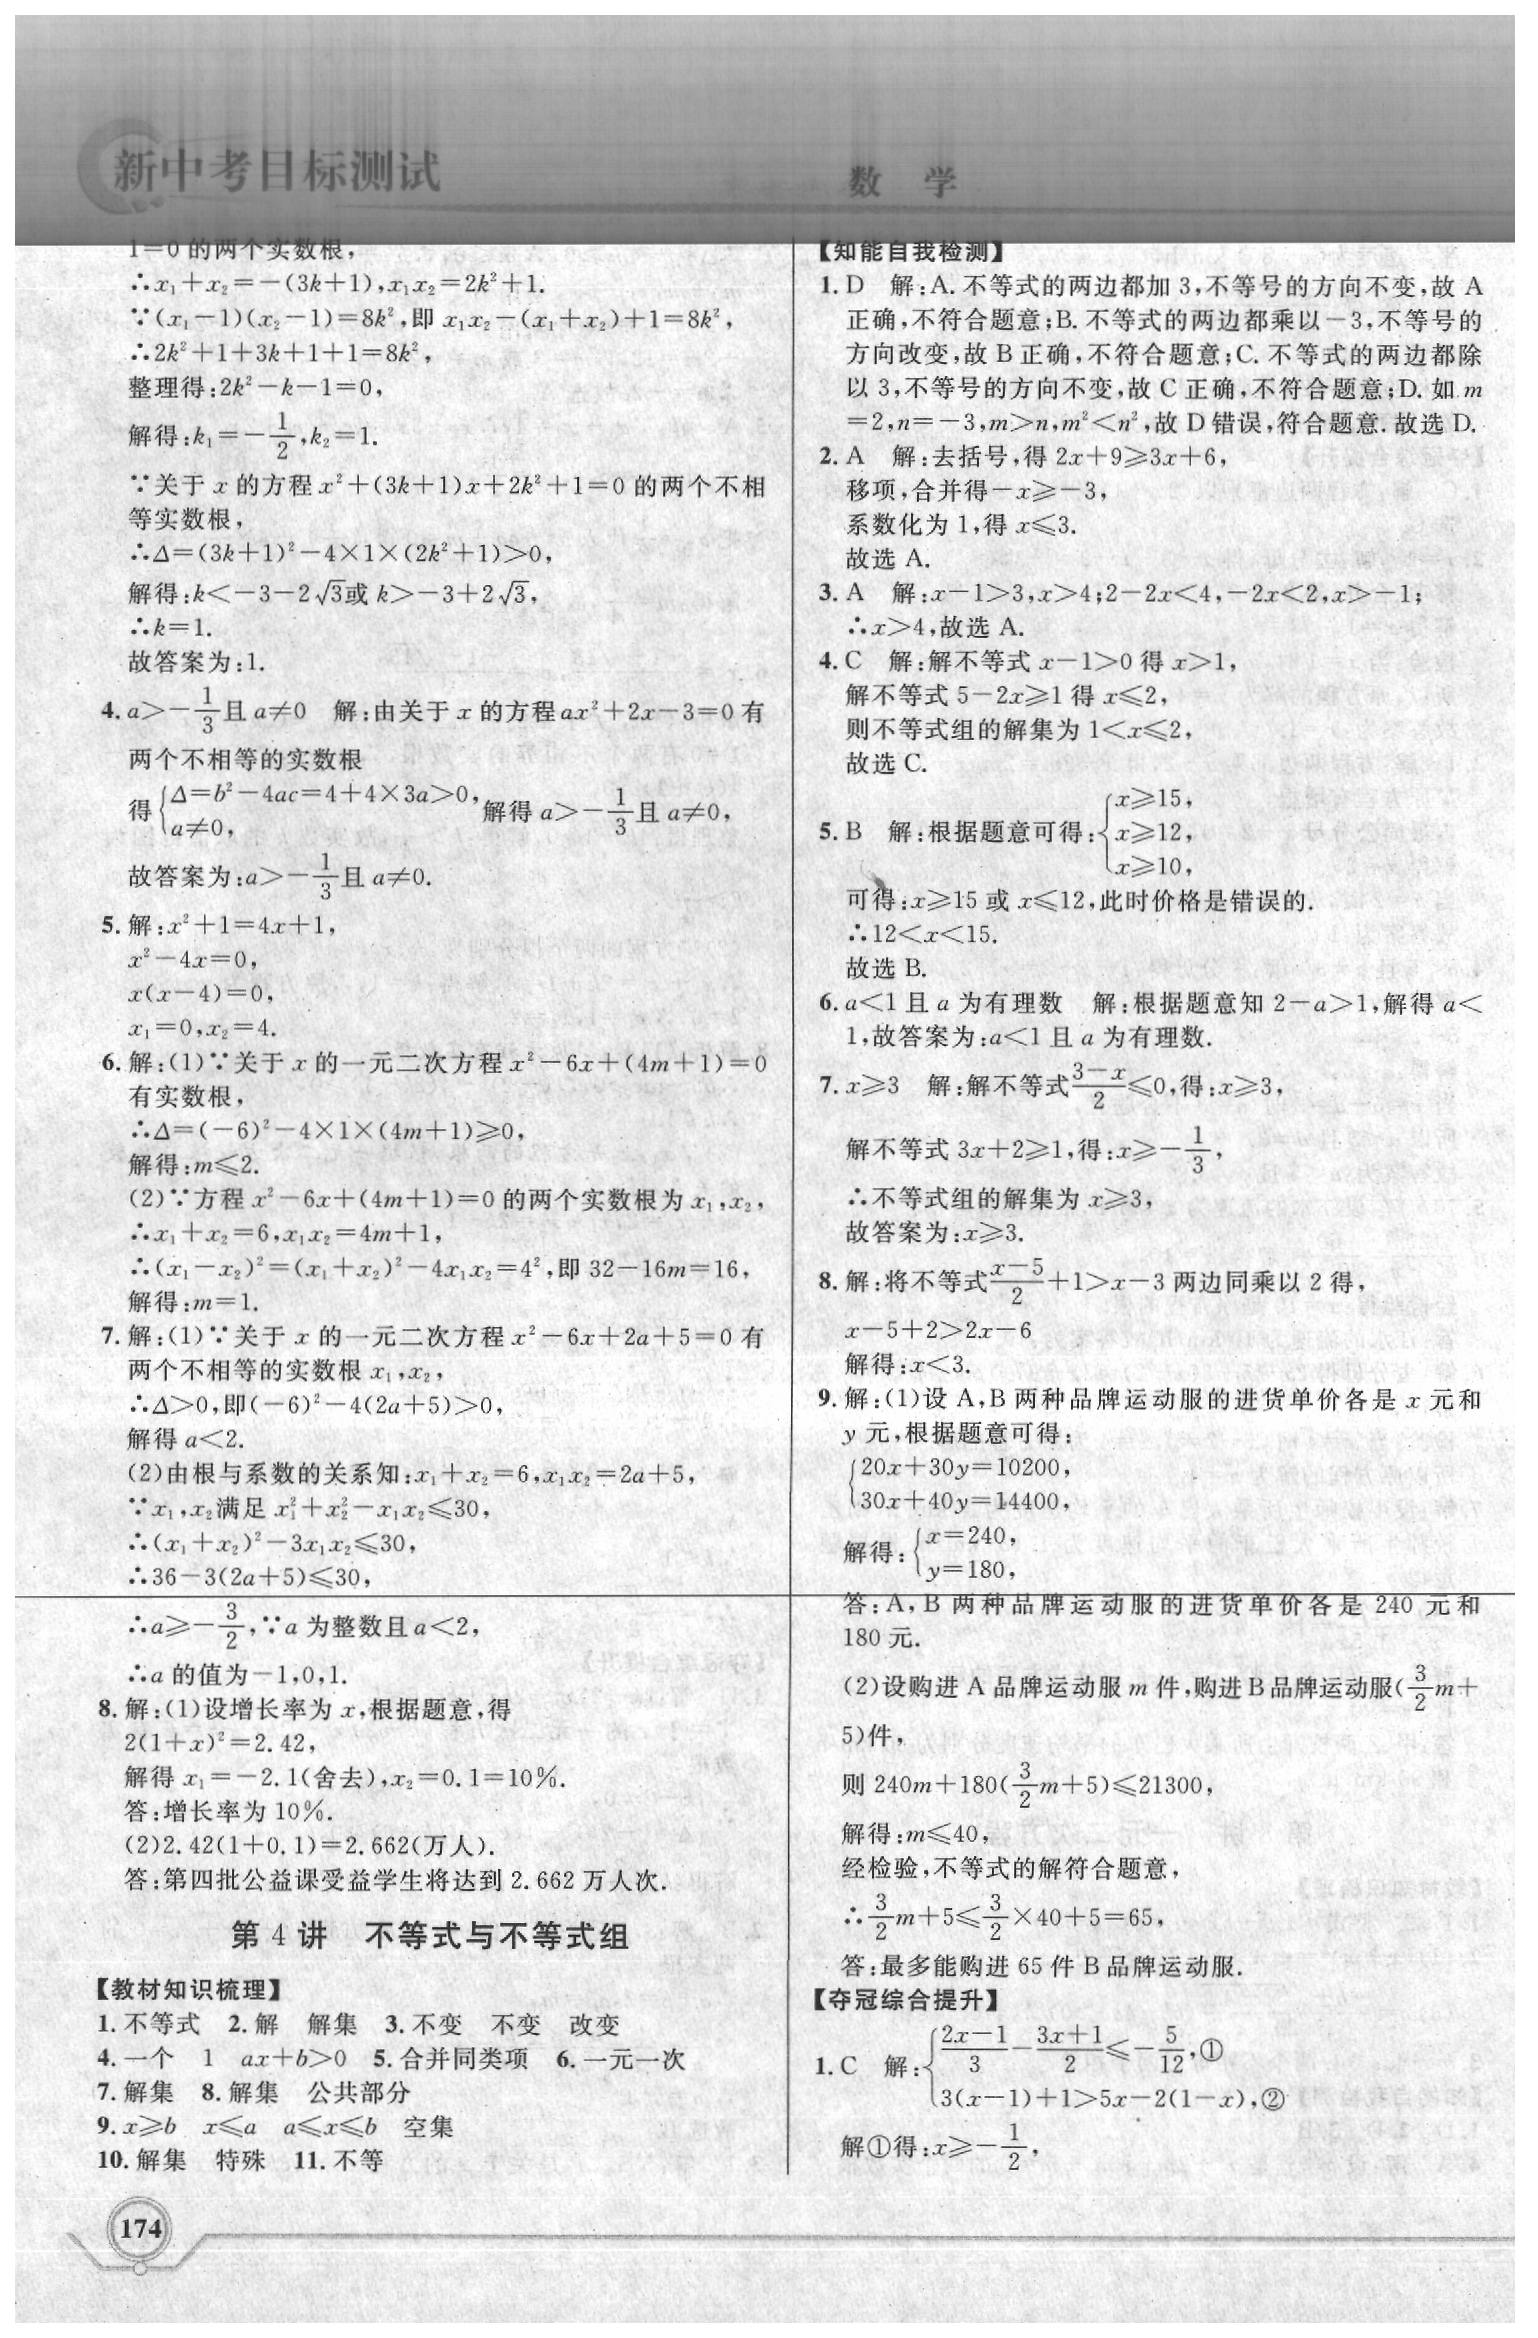 新中考目标测试
数 学
1=0 的两个实数根,
∴x₁+x₂=-(3k+1),x₁x₂=2k²+1.
∵(x₁-1)(x₂-1)=8k²,即 x₁x₂-(x₁+x₂)+1=8k²,
∴2k²+1+3k+1+1=8k²,
整理得:2k²-k-1=0,
解得:k₁=-1/2,k₂=1.
∵关于 x 的方程 x²+(3k+1)x+2k²+1=0 的两个不相
等实数根,
∴Δ=(3k+1)²-4×1×(2k²+1)>0,
解得:k<-3-2√3或 k>-3+2√3,
∴k=1.
故答案为:1.
4. a>-1/3且 a≠0 解:由关于 x 的方程ax²+2x-3=0 有
两个不相等的实数根
得{Δ=b²-4ac=4+4×3a>0, a≠0, 解得 a>-1/3且 a≠0,
故答案为:a>-1/3且 a≠0.
5. 解:x²+1=4x+1,
x²-4x=0,
x(x-4)=0,
x₁=0,x₂=4.
6. 解:(1)∵关于 x 的一元二次方程 x²-6x+(4m+1)=0
有实数根,
∴Δ=(-6)²-4×1×(4m+1)≥0,
解得:m≤2.
(2)∵方程 x²-6x+(4m+1)=0 的两个实数根为 x₁,x₂,
∴x₁+x₂=6,x₁x₂=4m+1,
∴(x₁-x₂)²=(x₁+x₂)²-4x₁x₂=4²,即 32-16m=16,
解得:m=1.
7. 解:(1)∵关于 x 的一元二次方程 x²-6x+2a+5=0 有
两个不相等的实数根 x₁,x₂,
∴Δ>0,即(-6)²-4(2a+5)>0,
解得 a<2.
(2)由根与系数的关系知:x₁+x₂=6,x₁x₂=2a+5,
∵x₁,x₂满足 x₁²+x₂²-x₁x₂≤30,
∴(x₁+x₂)²-3x₁x₂≤30,
∴36-3(2a+5)≤30,
∴a≥-3/2,∵a 为整数且 a<2,
∴a 的值为-1,0,1.
8. 解:(1)设增长率为 x,根据题意,得
2(1+x)²=2.42,
解得 x₁=-2.1(舍去),x₂=0.1=10%.
答:增长率为 10%.
(2)2.42(1+0.1)=2.662(万人).
答:第四批公益课受益学生将达到 2.662 万人次.
第 4 讲 不等式与不等式组
【教材知识梳理】
1. 不等式 2. 解 解集 3. 不变 不变 改变
4. 一个 1 ax+b>0 5. 合并同类项 6. 一元一次
7. 解集 8. 解集 公共部分
9. x≥b x≤a a≤x≤b 空集
10. 解集 特殊 11. 不等
174
【知能自我检测】
1. D 解:A. 不等式的两边都加 3,不等号的方向不变,故 A
正确,不符合题意;B. 不等式的两边都乘以-3,不等号的
方向改变,故 B 正确,不符合题意;C. 不等式的两边都除
以 3,不等号的方向不变,故 C 正确,不符合题意;D. 如 m
=2,n=-3,m>n,m²<n²,故 D 错误,符合题意. 故选 D.
2. A 解:去括号,得 2x+9≥3x+6,
移项,合并得-x≥-3,
系数化为 1,得 x≤3.
故选 A.
3. A 解:x-1>3,x>4;2-2x<4,-2x<2,x>-1;
∴x>4,故选 A.
4. C 解:解不等式 x-1>0 得 x>1,
解不等式 5-2x≥1 得 x≤2,
则不等式组的解集为 1<x≤2,
故选 C.
5. B 解:根据题意可得:{x≥15, x≥12, x≥10,
可得:x≥15 或 x≤12,此时价格是错误的.
∴12<x<15.
故选 B.
6. a<1 且 a 为有理数 解:根据题意知 2-a>1,解得 a<
1,故答案为:a<1 且 a 为有理数.
7. x≥3 解:解不等式(3-x)/2≤0,得:x≥3,
解不等式 3x+2≥1,得:x≥-1/3,
∴不等式组的解集为 x≥3,
故答案为:x≥3.
8. 解:将不等式(x-5)/2+1>x-3 两边同乘以 2 得,
x-5+2>2x-6
解得:x<3.
9. 解:(1)设 A,B 两种品牌运动服的进货单价各是 x 元和
y 元,根据题意可得:
{20x+30y=10200,
30x+40y=14400,
解得:{x=240, y=180,
答:A,B 两种品牌运动服的进货单价各是 240 元和
180 元.
(2)设购进 A 品牌运动服 m 件,购进 B 品牌运动服(3/2m+
5)件,
则 240m+180(3/2m+5)≤21300,
解得:m≤40,
经检验,不等式的解符合题意,
∴3/2m+5≤3/2×40+5=65,
答:最多能购进 65 件 B 品牌运动服.
【夺冠综合提升】
1. C 解:{(2x-1)/3-(3x+1)/2≤-5/12,①
3(x-1)+1>5x-2(1-x),②
解①得:x≥-1/2,